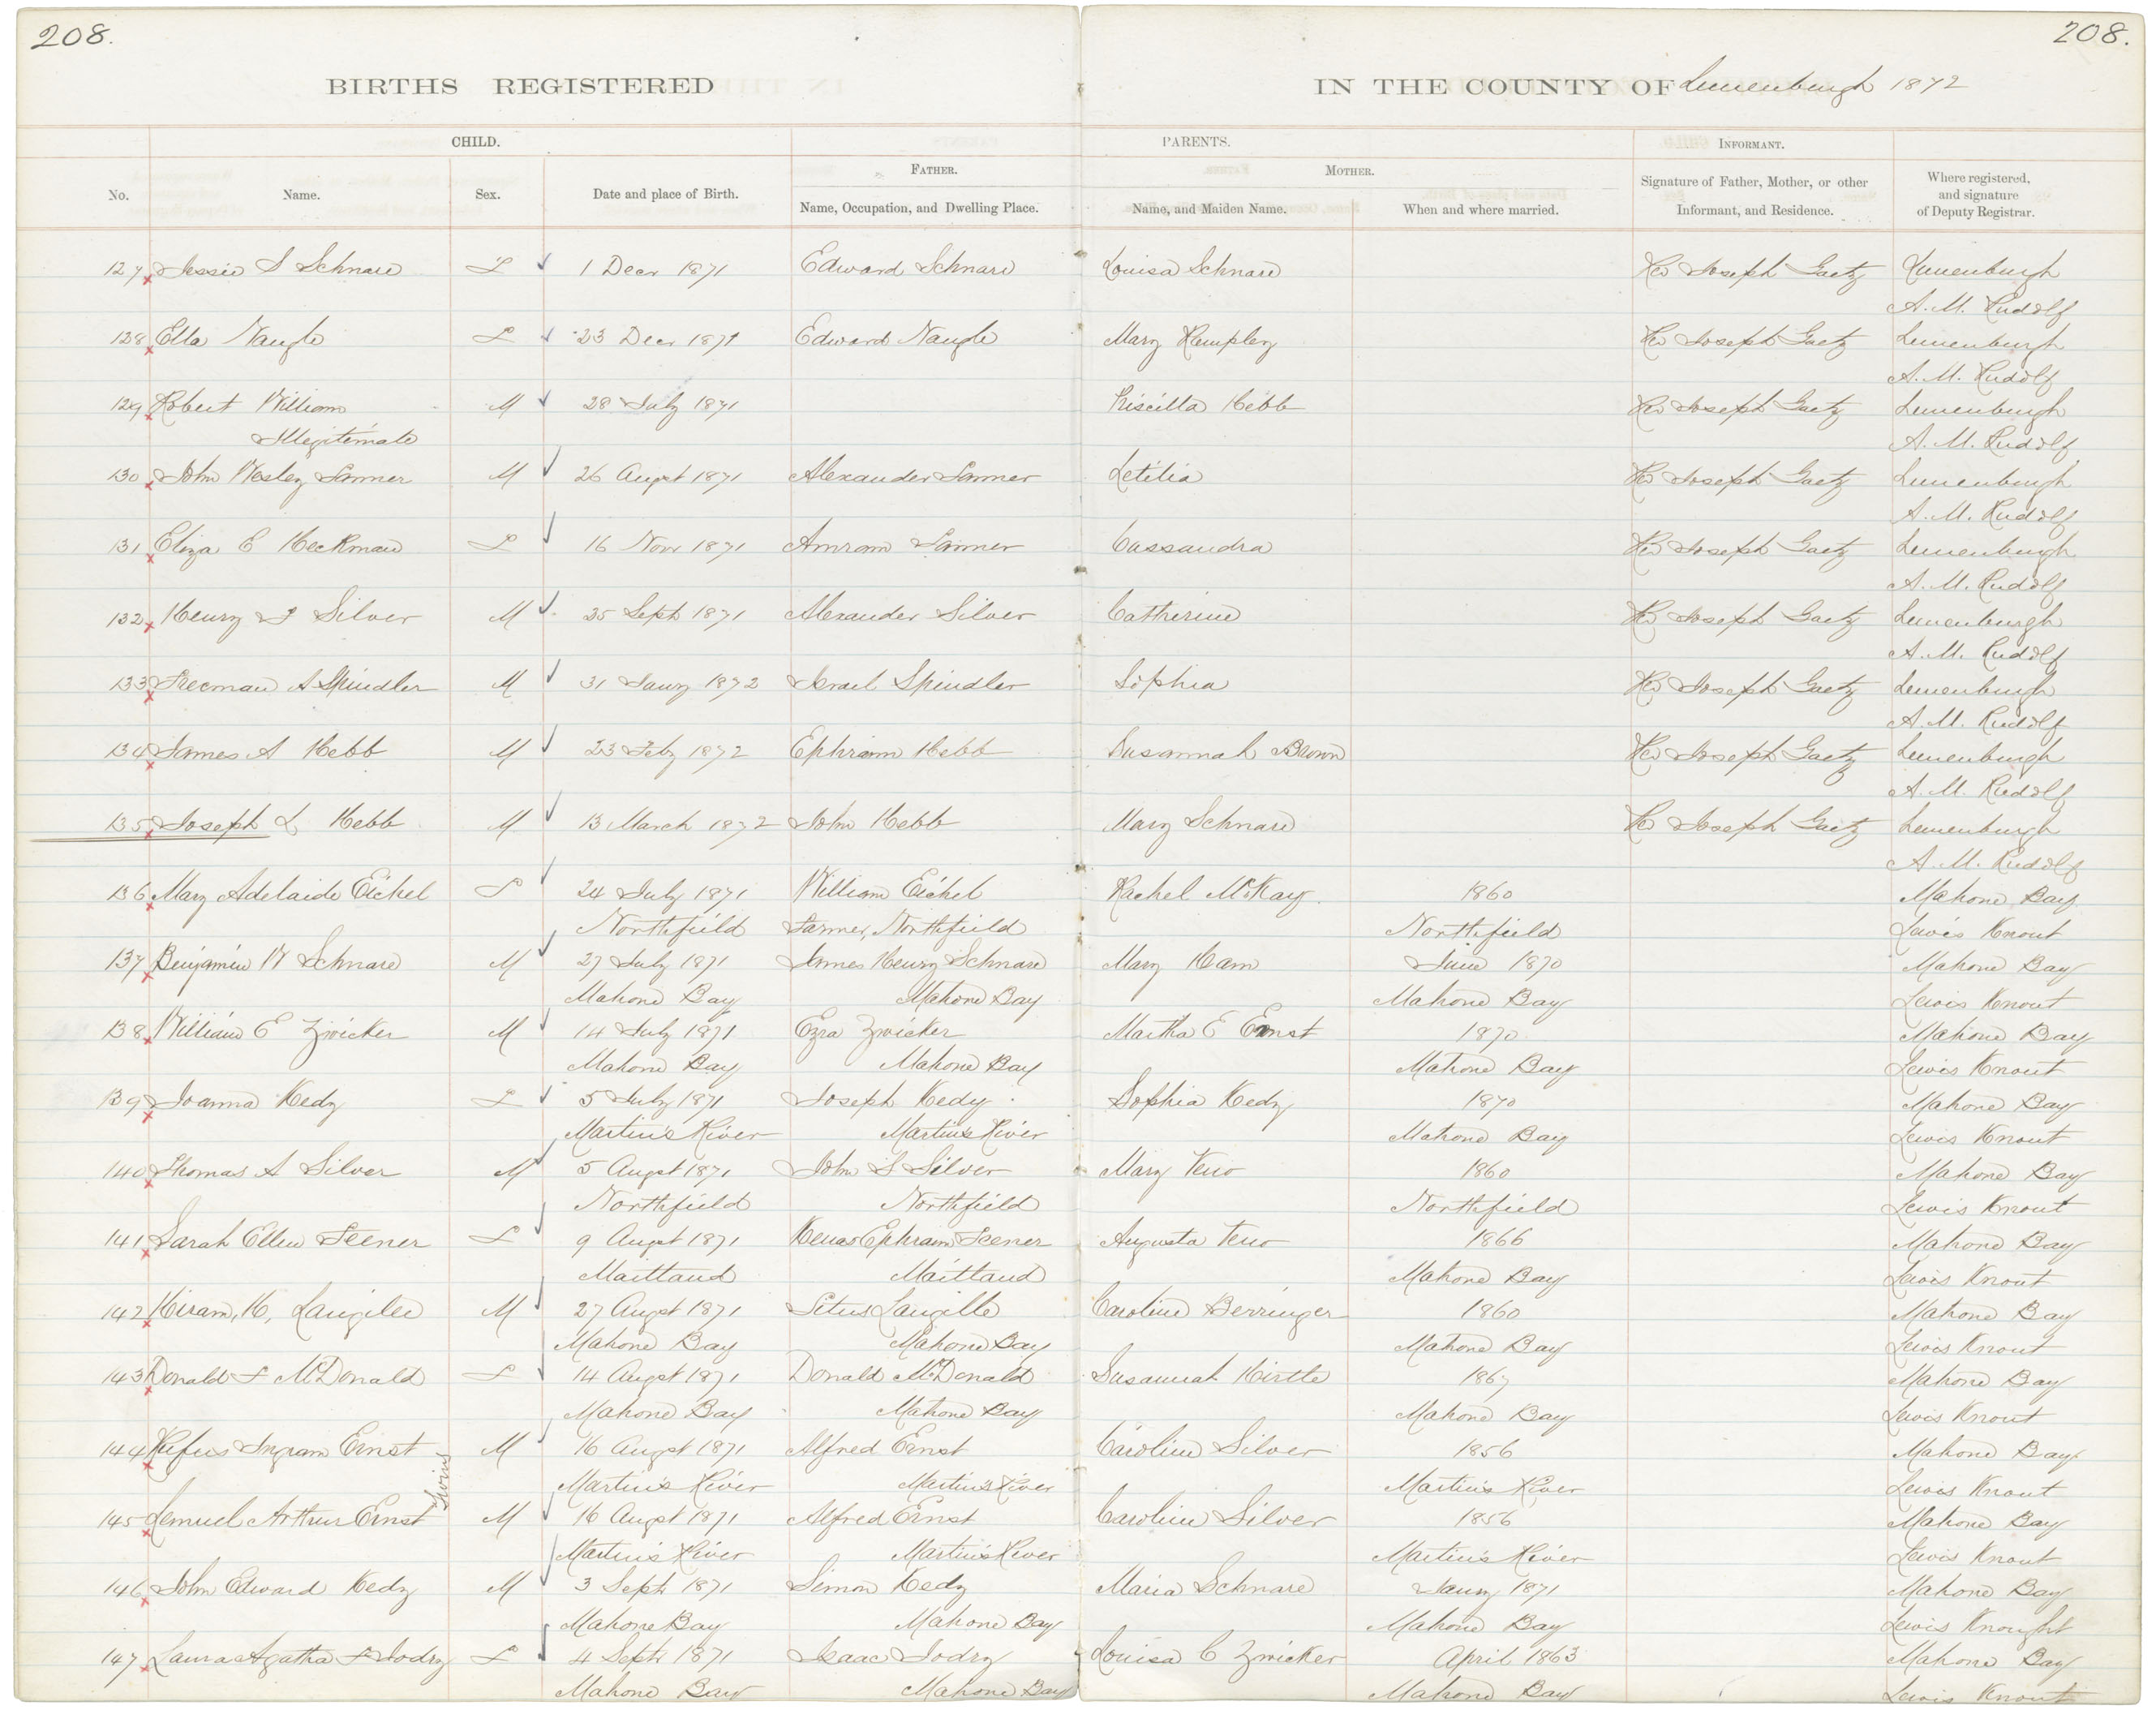 208.
208.
BIRTHS REGISTERED IN THE COUNTY OF Lunenburgh 1872
CHILD. PARENTS. INFORMANT.
FATHER. MOTHER.
No. Name. Sex. Date and place of Birth. Name, Occupation, and Dwelling Place. Name, and Maiden Name. When and where married. Signature of Father, Mother, or other Informant, and Residence. Where registered, and signature of Deputy Registrar.
127 Jessie S Schnare F 1 Decr 1871 Edward Schnare Louisa Schnare Rev Joseph Gaetz Lunenburgh
A. M. Rudolf
128 Ella Naugle F 23 Decr 1871 Edward Naugle Mary Rev Joseph Gaetz Lunenburgh
A. M. Rudolf
129 Robert William M 28 July 1871 Priscilla Hebb Rev Joseph Gaetz Lunenburgh
Illegitimate A. M. Rudolf
130 John Wesley M 26 Augst 1871 Alexander Letitia Rev Joseph Gaetz Lunenburgh
A. M. Rudolf
131 Eliza E Heckman F 16 Novr 1871 Amram Cassandra Rev Joseph Gaetz Lunenburgh
A. M. Rudolf
132 Henry F Silver M 25 Sept 1871 Alexander Silver Catherine Rev Joseph Gaetz Lunenburgh
A. M. Rudolf
133 Freeman A Spindler M 31 Jany 1872 Israel Spindler Sophia Rev Joseph Gaetz Lunenburgh
A. M. Rudolf
134 James A Hebb M 23 Feby 1872 Ephraim Hebb Susannah Brown Rev Joseph Gaetz Lunenburgh
A. M. Rudolf
135 Joseph L Hebb M 13 March 1872 John Hebb Mary Schnare Rev Joseph Gaetz Lunenburgh
A. M. Rudolf
136 Mary Adelaide Eichel F 24 July 1871 William Eichel Rachel McKay 1860 Mahone Bay
Northfield Farmer, Northfield Northfield Lewis Knout
137 Benjamin W Schnare M 27 July 1871 James Henry Schnare Mary Ham June 1870 Mahone Bay
Mahone Bay Mahone Bay Mahone Bay Lewis Knout
138 William E Zwicker M 14 July 1871 Ezra Zwicker Martha E Ernst 1870 Mahone Bay
Mahone Bay Mahone Bay Mahone Bay Lewis Knout
139 Joanna Kedy F 5 July 1871 Joseph Kedy Sophia Kedy 1870 Mahone Bay
Martin's River Martin's River Mahone Bay Lewis Knout
140 Thomas A Silver M 5 Augst 1871 John S Silver Mary 1860 Mahone Bay
Northfield Northfield Northfield Lewis Knout
141 Sarah Ellen Feener F 9 Augst 1871 Ephraim Feener Augusta 1866 Mahone Bay
Maitland Maitland Mahone Bay Lewis Knout
142 Hiram, H, Langille M 27 Augst 1871 Titus Langille Caroline Berringer 1860 Mahone Bay
Mahone Bay Mahone Bay Mahone Bay Lewis Knout
143 Donald F McDonald F 14 Augst 1871 Donald McDonald Susannah Hirtle 1867 Mahone Bay
Mahone Bay Mahone Bay Mahone Bay Lewis Knout
144 Rufus Ingram Ernst M 16 Augst 1871 Alfred Ernst Caroline Silver 1856 Mahone Bay
Twins
Martin's River Martin's River Martin's River Lewis Knout
145 Lemuel Arthur Ernst M 16 Augst 1871 Alfred Ernst Caroline Silver 1856 Mahone Bay
Martin's River Martin's River Martin's River Lewis Knout
146 John Edward Kedy M 3 Sept 1871 Simon Kedy Maria Schnare Jany 1871 Mahone Bay
Mahone Bay Mahone Bay Mahone Bay Lewis Knought
147 Laura Agatha F Jodry F 4 Sept 1871 Isaac Jodry Louisa C Zwicker April 1863 Mahone Bay
Mahone Bay Mahone Bay Mahone Bay Lewis Knout